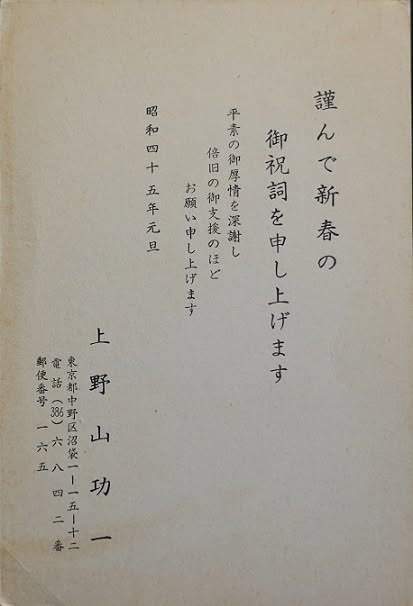 謹んで新春の
御祝詞を申し上げます
平素の御厚情を深謝し
倍旧の御支援のほど
お願い申し上げます
昭和四十五年元旦
上野山功一
東京都中野区沼袋一ー一五ー十二
電話(386)六八四二番
郵便番号一六五